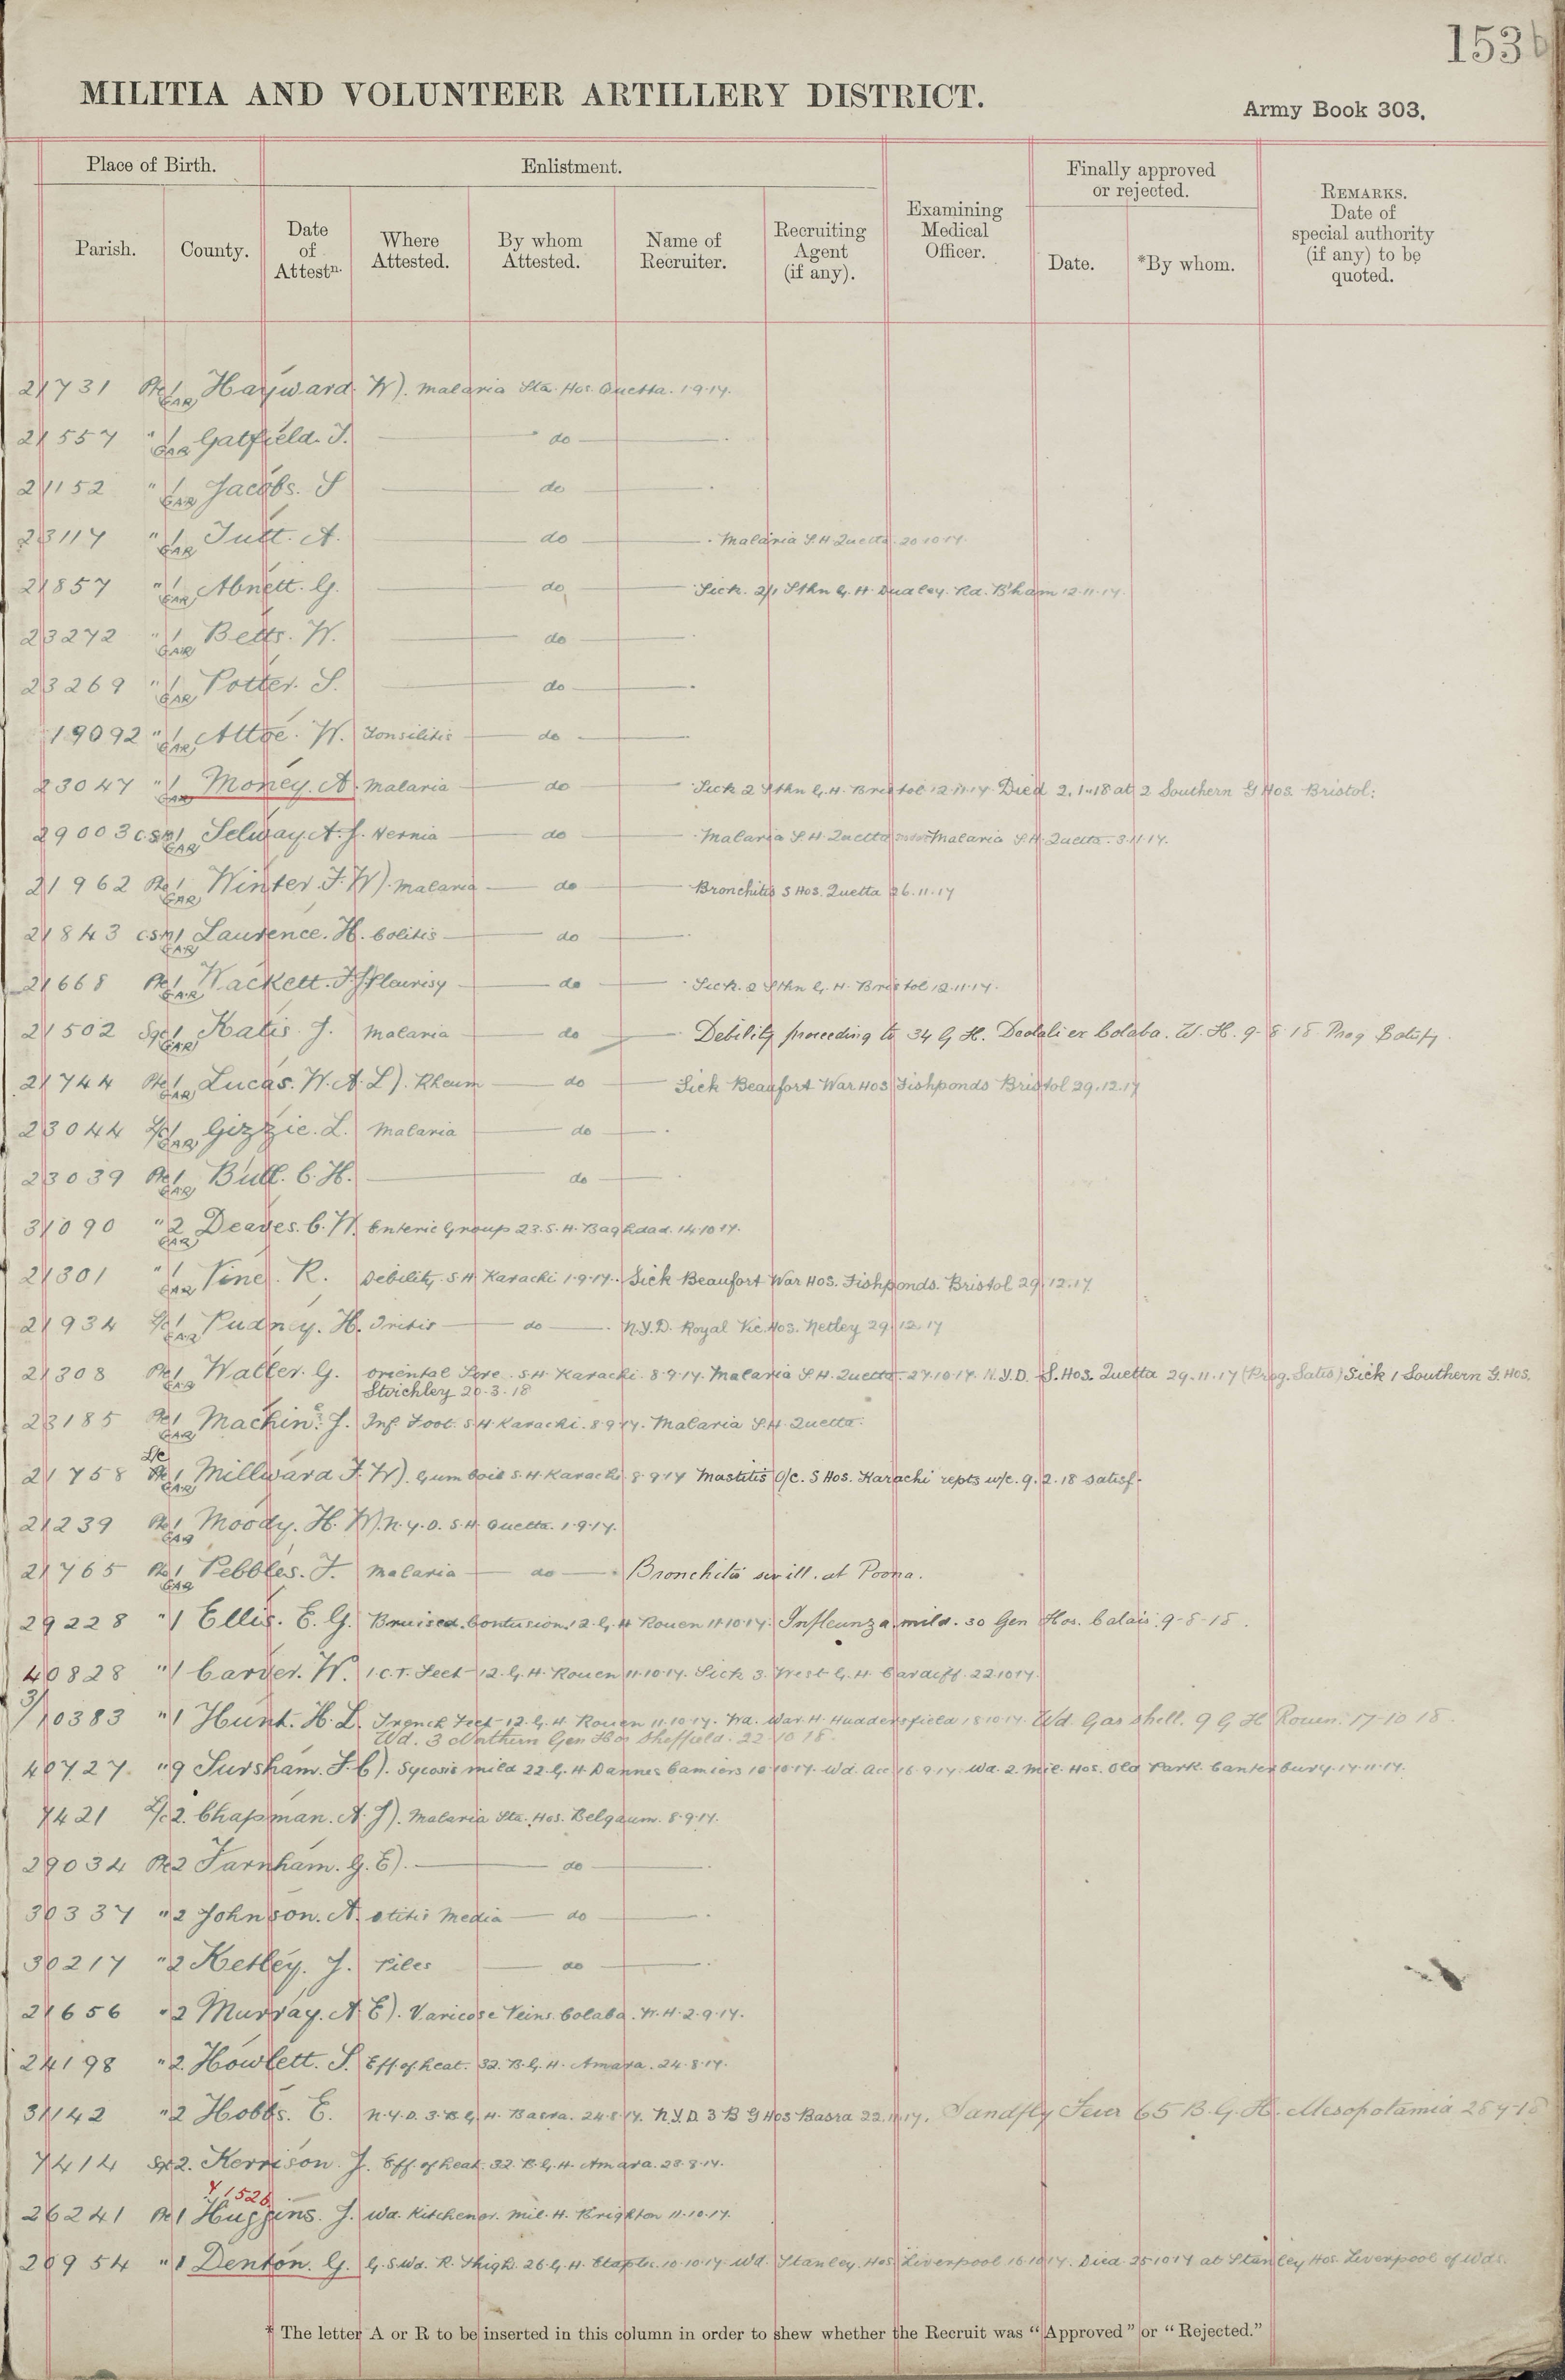 153b
MILITIA AND VOLUNTEER ARTILLERY DISTRICT.
Army Book 303.
Place of Birth. Enlistment. Examining Medical Officer. Finally approved or rejected. REMARKS. Date of special authority (if any) to be quoted.
Parish. County. Date of Attestn. Where Attested. By whom Attested. Name of Recruiter. Recruiting Agent (if any). Date. *By whom.
21731 Pte 1 GAR Hayward W). Malaria Sta. Hos. Quetta. 1.9.17.
21557 " 1 GAR Gatfield. J. do
21152 " 1 GAR Jacobs. S do
23117 " 1 GAR Jutt. A. do Malaria S.H. Quetta 20.10.17.
21857 " 1 GAR Abnett. G. do Sick. 2/1 Sthn G.H. Dudley. Rd. B'ham 12.11.17.
23272 " 1 GAR Betts. W. do
23269 " 1 GAR Potter. S. do
19092 " 1 GAR Attoe. W. Tonsilitis do
23047 " 1 GAR Money. A. Malaria do Sick 2 Sthn G.H. Bristol 12.11.17 Died 2.1.18 at 2 Southern G Hos. Bristol:
29003 CSM 1 GAR Selway. A.J. Hernia do Malaria S.H. Quetta Malaria S.H. Quetta. 3.11.17.
21962 Pte 1 GAR Winter. F. W). Malaria do Bronchitis S Hos. Quetta 26.11.17
21843 CSM 1 GAR Laurence. H. Colitis do
21668 Pte 1 GAR Wackett. F. Pleurisy do Sick. 2 Sthn G.H. Bristol 12.11.17.
21502 Sgt 1 GAR Katis. J. Malaria do Debility proceeding to 34 G H. Deolali ex Colaba. W. H. 9-8 18 Prog Satisfy.
21744 Pte 1 GAR Lucas. W. A. L). Rheum do Sick Beaufort War Hos Fishponds Bristol 29.12.17
23044 L/c 1 GAR Gizzie. L. Malaria do
23039 Pte 1 GAR Bull. C. H. do
31090 " 2 GAR Deaves. C. W. Enteric Group 23. S. H. Baghdad. 14.10.17.
21301 " 1 GAR Vine. R. Debility, S H Karachi 1.9.17. Sick Beaufort War Hos. Fishponds. Bristol 29.12.17
21934 L/c 1 GAR Pudney. H. Iritis do N.Y.D. Royal Vic. Hos. Netley 29.12.17
21308 Pte 1 GAR Waller. G. Oriental Sore. S H Karachi. 8.9.17. Malaria S.H. Quetta 27.10.17. N.Y.D. S. Hos. Quetta 29.11.17 (Prog. Satis) Sick 1 Southern G. Hos.
Stirchley 20.3.18
23185 Pte 1 GAR Machin. J. Inf. Foot. S H Karachi. 8.9.17. Malaria S.H. Quetta.
L/c
21758 Pte 1 GAR Millward F. W). Gum boil S. H. Karachi 8.9.17 Mastitis O/c. S Hos. Karachi repts w/e. 9.2.18 satisf.
21239 Pte 1 GAR Moody. H. W). N.Y.D. S.H. Quetta. 1.9.17.
21765 Pte 1 GAR Pebbles. F. Malaria do Bronchitis ser ill. at Poona.
29228 " 1 Ellis. E. G. Bruised. Contusion. 12. G. H. Rouen 11.10.17. Infleunza mild. 30 Gen Hos. Calais. 9-8-18.
40828 " 1 Carver. W. I.C.T. Feet 12. G. H. Rouen 11.10.17. Sick 3. West G. H. Cardiff. 22.10.17.
3/10383 " 1 Hunt. H. L. Trench Feet 12. G. H. Rouen 11.10.17. Tra. War. H. Huddersfield 18.10.17. Wd. Gas Shell. 9 G H Rouen. 17-10 18.
Wd. 3 Northern Gen Hos Sheffield. 22 10 18.
40727 " 9 Sursham. F. C). Sycosis mild 22. G. H. Dannes Camiers 10.10.17. Wd. Acc 16.9.17. Wd. 2. Mil. Hos. Old Park. Canterbury. 17.11.17.
7421 L/c 2. Chapman. A. J). Malaria Sta. Hos. Belgaum. 8.9.17.
29034 Pte 2 Farnham. G. E). do
30337 " 2 Johnson. A. Otitis Media do
30217 " 2 Ketley. J. Piles do
21656 " 2 Murray. A. E). Varicose Veins. Colaba. W. H. 2.9.17.
24198 " 2. Howlett. S. Eff. of heat. 32. B. G. H. Amara. 24.8.17.
31142 " 2 Hobbs. E. N.Y.D. 3. B. G. H. Basra. 24.8.17. N.Y.D 3 B G Hos Basra 22.11.17. Sandfly Fever 65 B. G. H. Mesopotamia 28 7-18
7414 Sgt 2. Kerrison. J. Eff. of heat. 32. B. G. H. Amara. 28.8.17.
41526
26241 Pte 1 Huggins. J. Wd. Kitchener. Mil. H. Brighton 11.10.17.
20954 " 1 Denton. G. G.S.Wd. R. Thigh. 26. G. H. Etaples. 10.10.17. Wd. Stanley. Hos Liverpool 16.10.17. Died 25.10.17 at Stanley Hos. Liverpool of wds.
* The letter A or R to be inserted in this column in order to shew whether the Recruit was "Approved" or "Rejected."